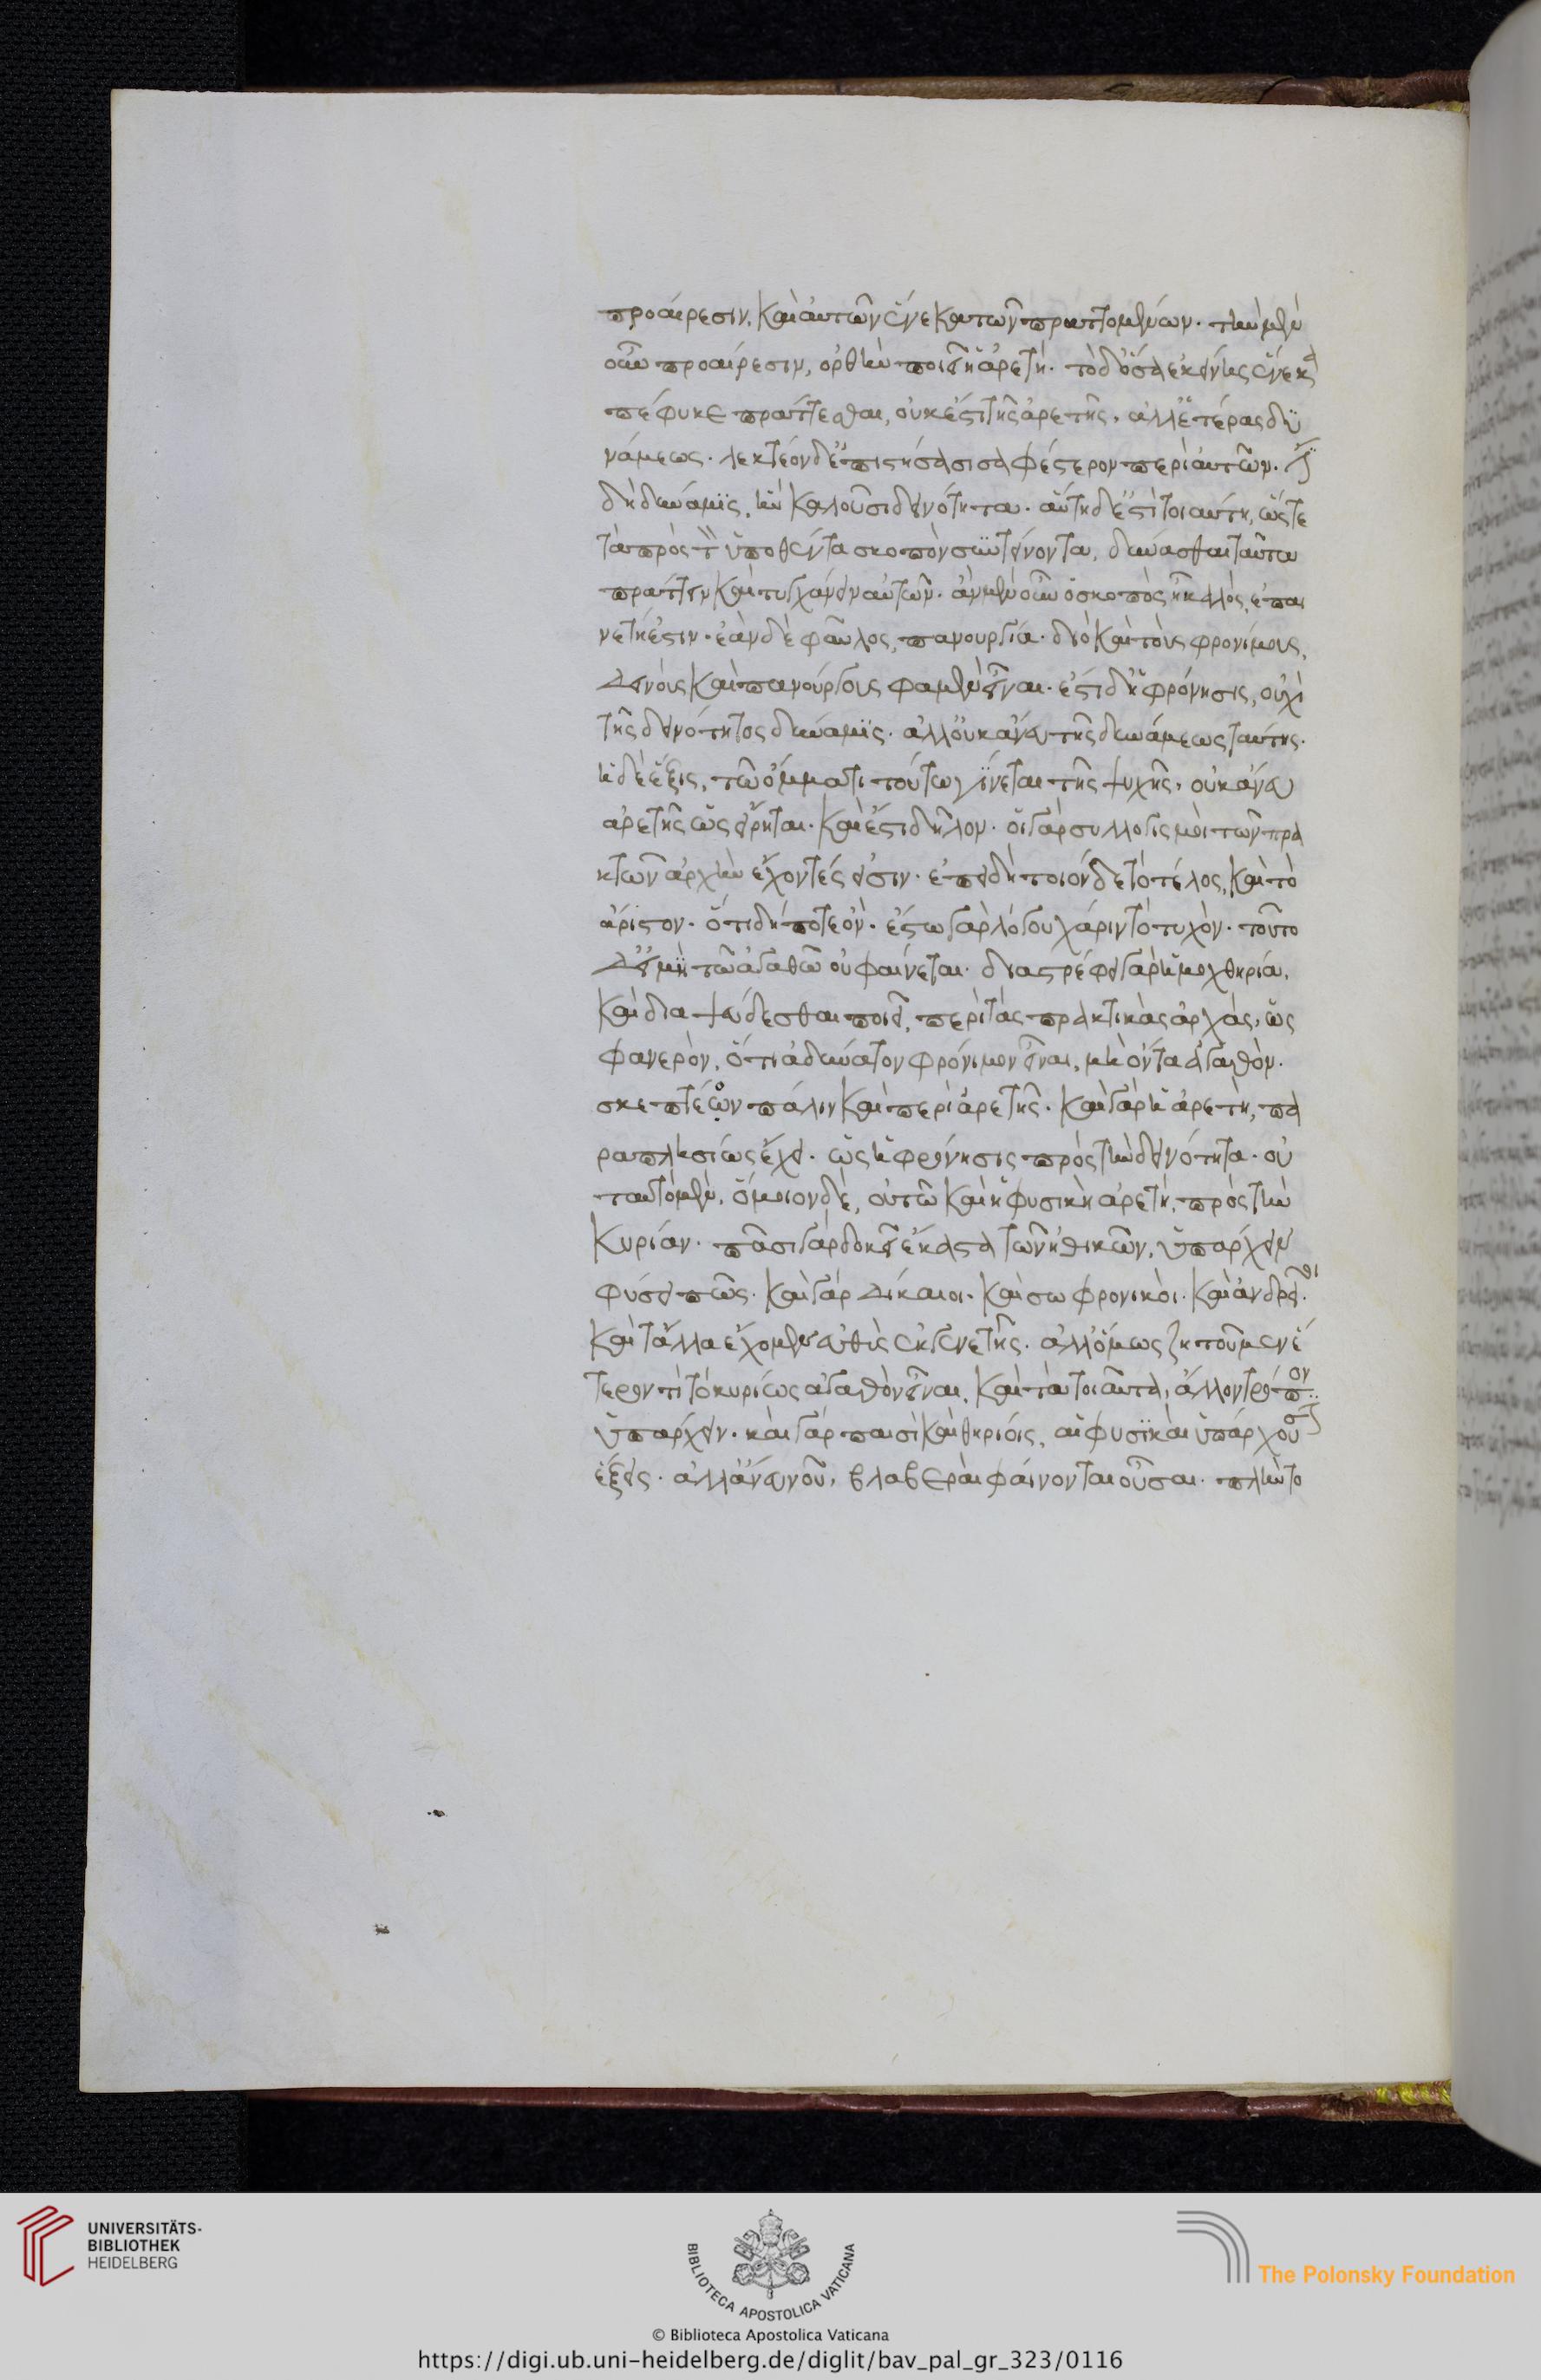 προαίρεσιν, καὶ αὐτῶν ἕνεκα τῶν πραττομένων. τὴν μὲν
οὖν προαίρεσιν, ὀρθὴν ποιεῖ ἡ ἀρετή. τὸ δ' ὅσα ἐκείνης ἕνεκα
πέφυκε πράττεσθαι, οὐκ ἔστι τῆς ἀρετῆς, ἀλλ' ἑτέρας δυ
νάμεως. λεκτέον δ' ἐπιστήσασι σαφέστερον περὶ αὐτῶν. ἔστι
δὴ δύναμις, ἣν καλοῦσι δεινότητα. αὕτη δ' ἐστὶ τοιαύτη, ὥστε
τὰ πρὸς τὸν ὑποθέντα σκοπὸν συντείνοντα, δύνασθαι ταῦτα
πράττειν καὶ τυγχάνειν αὐτῶν. ἂν μὲν οὖν ὁ σκοπὸς ᾖ καλός, ἐπαι
νετή ἐστιν. ἐὰν δὲ φαῦλος, πανουργία. διὸ καὶ τοὺς φρονίμους,
δεινοὺς καὶ πανούργους φαμὲν εἶναι. ἔστι δ' ἡ φρόνησις, οὐχὶ
τῆς δεινότητος δύναμις. ἀλλ' οὐκ ἄνευ τῆς δυνάμεως ταύτης.
ἡ δὲ ἕξις, τῶ ὄμματι τούτω γίνεται τῆς ψυχῆς, οὐκ ἄνευ
ἀρετῆς ὡς εἴρηται. καὶ ἔστι δῆλον. οἱ γὰρ συλλογισμοὶ τῶν πρα
κτῶν ἀρχὴν ἔχοντές εἰσιν. ἐπειδὴ τοιόνδε τὸ τέλος, καὶ τὸ
ἄριστον. ὅτι δήποτε ὄν. ἔστω γὰρ λόγου χάριν τὸ τυχόν. τοῦτο
δ' εἰ μὴ τῶ ἀγαθῶ οὐ φαίνεται. διαστρέφει γὰρ ἡ μοχθηρία,
καὶ διαψεύδεσθαι ποιεῖ, περὶ τὰς πρακτικὰς ἀρχάς, ὡς
φανερὸν, ὅτι ἀδύνατον φρόνιμον εἶναι, μὴ ὄντα ἀγαθόν.
σκεπτέον πάλιν καὶ περὶ ἀρετῆς. καὶ γὰρ ἡ ἀρετὴ, πα
ραπλησίως ἔχει. ὡς ἡ φρόνησις πρὸς τὴν δεινότητα. οὐ
ταυτὸ μὲν, ὅμοιον δὲ, οὕτω καὶ ἡ φυσικὴ ἀρετὴ, πρὸς τὴν
κυρίαν. πᾶσι γὰρ δοκεῖ ἕκαστα τῶν ἠθικῶν, ὑπάρχειν
φύσει πως. καὶ γὰρ δίκαιοι. καὶ σωφρονικοὶ. καὶ ἀνδρεῖοι.
καὶ τἄλλα ἔχομεν εὐθὺς ἐκ γενετῆς. ἀλλ' ὅμως ζητοῦμεν ἕ
τερόν τι τὸ κυρίως ἀγαθὸν εἶναι, καὶ τὰ τοιαῦτα, ἄλλον τρόπον
ὑπάρχειν. καὶ γὰρ παισὶ καὶ θηρίοις, αἱ φυσικαὶ ὑπάρχουσιν
ἕξεις. ἀλλ' ἄνευ νοῦ, βλαβεραὶ φαίνονται οὖσαι. πλὴν το
UNIVERSITÄTS-
BIBLIOTHEK
HEIDELBERG
BIBLIOTECA APOSTOLICA VATICANA
The Polonsky Foundation
© Biblioteca Apostolica Vaticana
https://digi.ub.uni-heidelberg.de/diglit/bav_pal_gr_323/0116